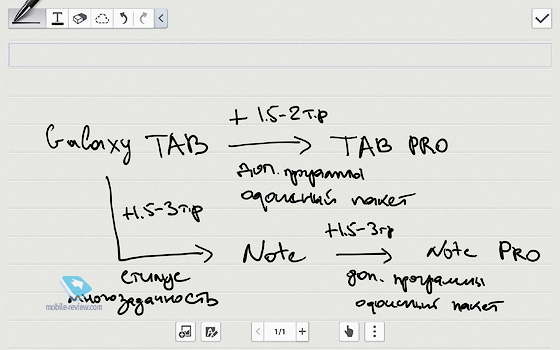 T
+ 1.5-2т.р
Galaxy TAB → TAB PRO
доп. программы
офисный пакет
+1.5-3т.р
+1.5-3тр
Note → Note PRO
стилус
многозадачность
доп. программы
офисный пакет
mobile-review.com
1/1